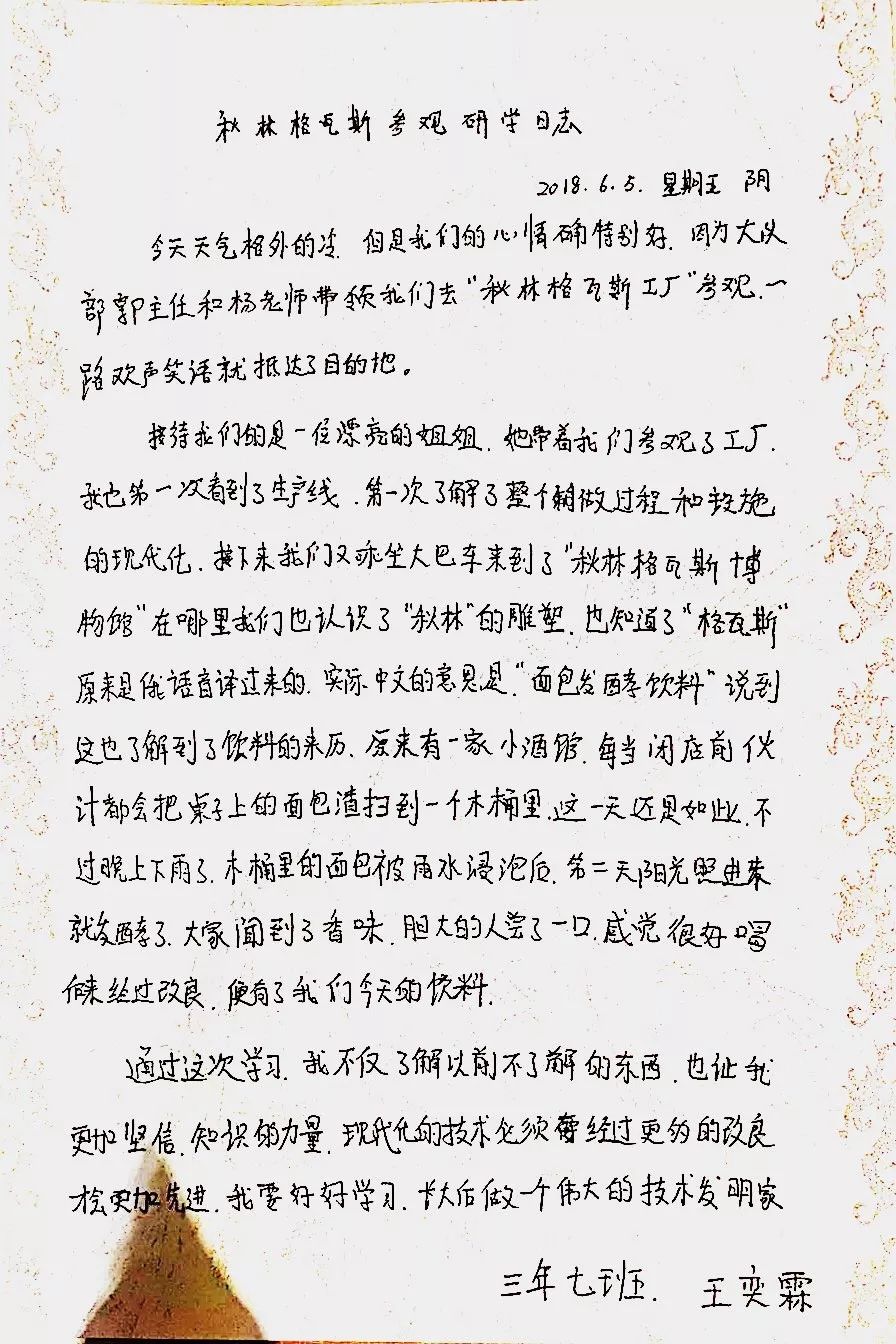 秋林格瓦斯参观研学日志
2018.6.5. 星期五 阴
今天天气格外的冷.但是我们的心情确特别好.因为大队
部郭主任和杨老师带领我们去“秋林格瓦斯工厂”参观.一
路欢声笑语就抵达了目的地。
接待我们的是一位漂亮的姐姐.她带着我们参观了工厂.
我也第一次看到了生产线.第一次了解了整个制做过程和设施
的现代化.接下来我们又乘坐大巴车来到了“秋林格瓦斯博
物馆”在哪里我们也认识了“秋林”的雕塑.也知道了“格瓦斯”
原来是俄语音译过来的.实际中文的意思是“面包发酵饮料”说到
这也了解到了饮料的来历.原来有一家小酒馆.每当闭店前伙
计都会把桌子上的面包渣扫到一个木桶里.这一天还是如此.不
过晚上下雨了.木桶里的面包被雨水浸泡后.第二天阳光照进来
就发酵了.大家闻到了香味.胆大的人尝了一口.感觉很好喝
后来经过改良.便有了我们今天的饮料.
通过这次学习.我不仅了解以前不了解的东西.也让我
更加坚信.知识的力量.现代化的技术必须要经过更多的改良
才会更加先进.我要好好学习.长大后做一个伟大的技术发明家
三年七班. 王奕霖